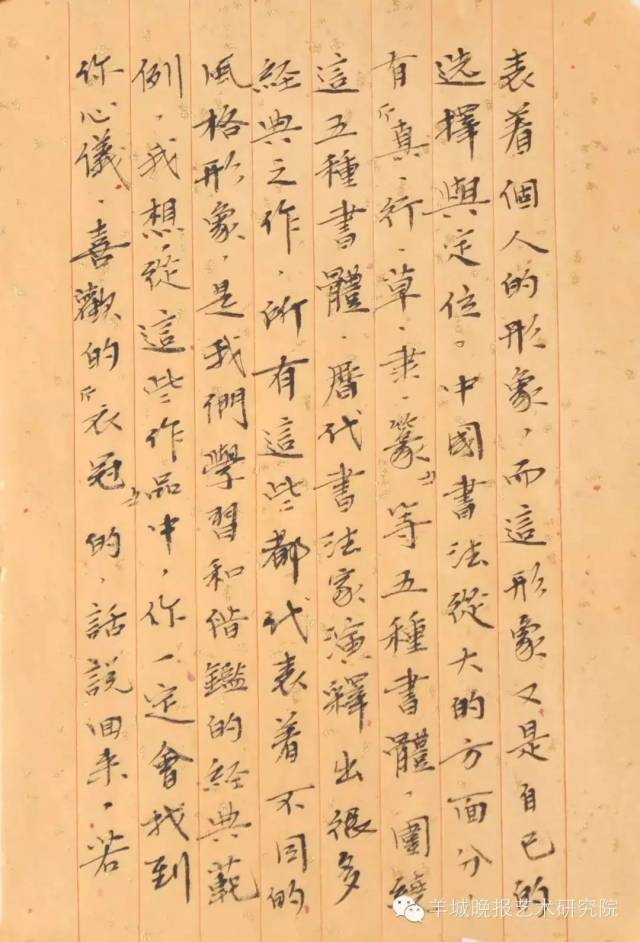 表着個人的形象，而這形象又是自己的
選擇與定位。中國書法從大的方面分，
有『真、行、草、隶、篆』等五種書體，圍繞
這五種書體，曆代書法家演釋出很多
經典之作，所有這些都代表着不同的
風格形象，是我們學習和借鑑的經典範
例，我想，從這些作品中，你一定會找到
你心儀、喜歡的『衣冠』的，話說回来，若
羊城晚报艺术研究院